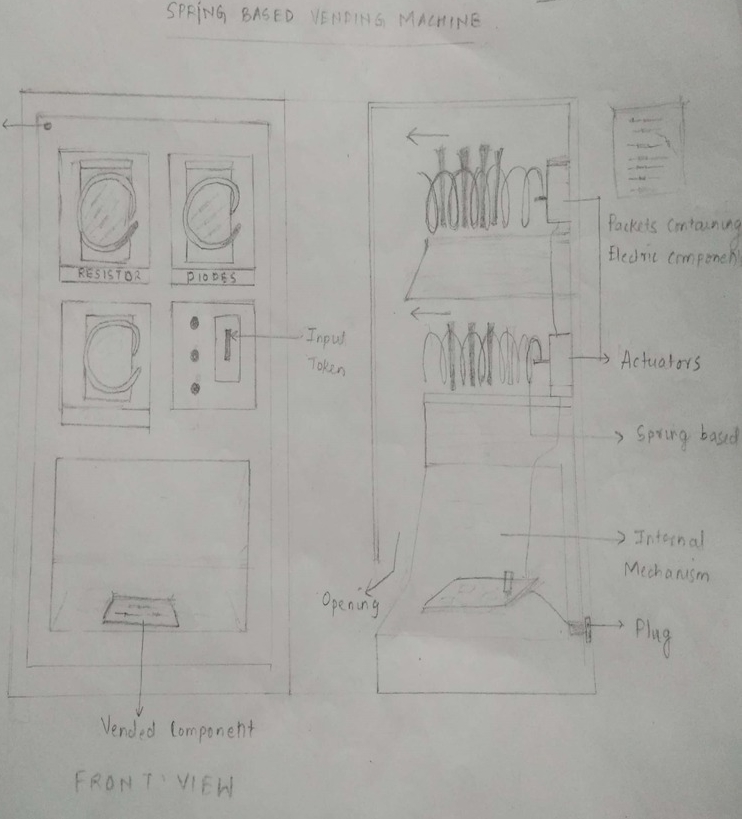 SPRING BASED VENDING MACHINE
RESISTOR
DIODES
Input
Token
Vended Component
FRONT VIEW
Packets Containing
Electric Component
Actuators
Spring based
Internal
Mechanism
Opening
Plug